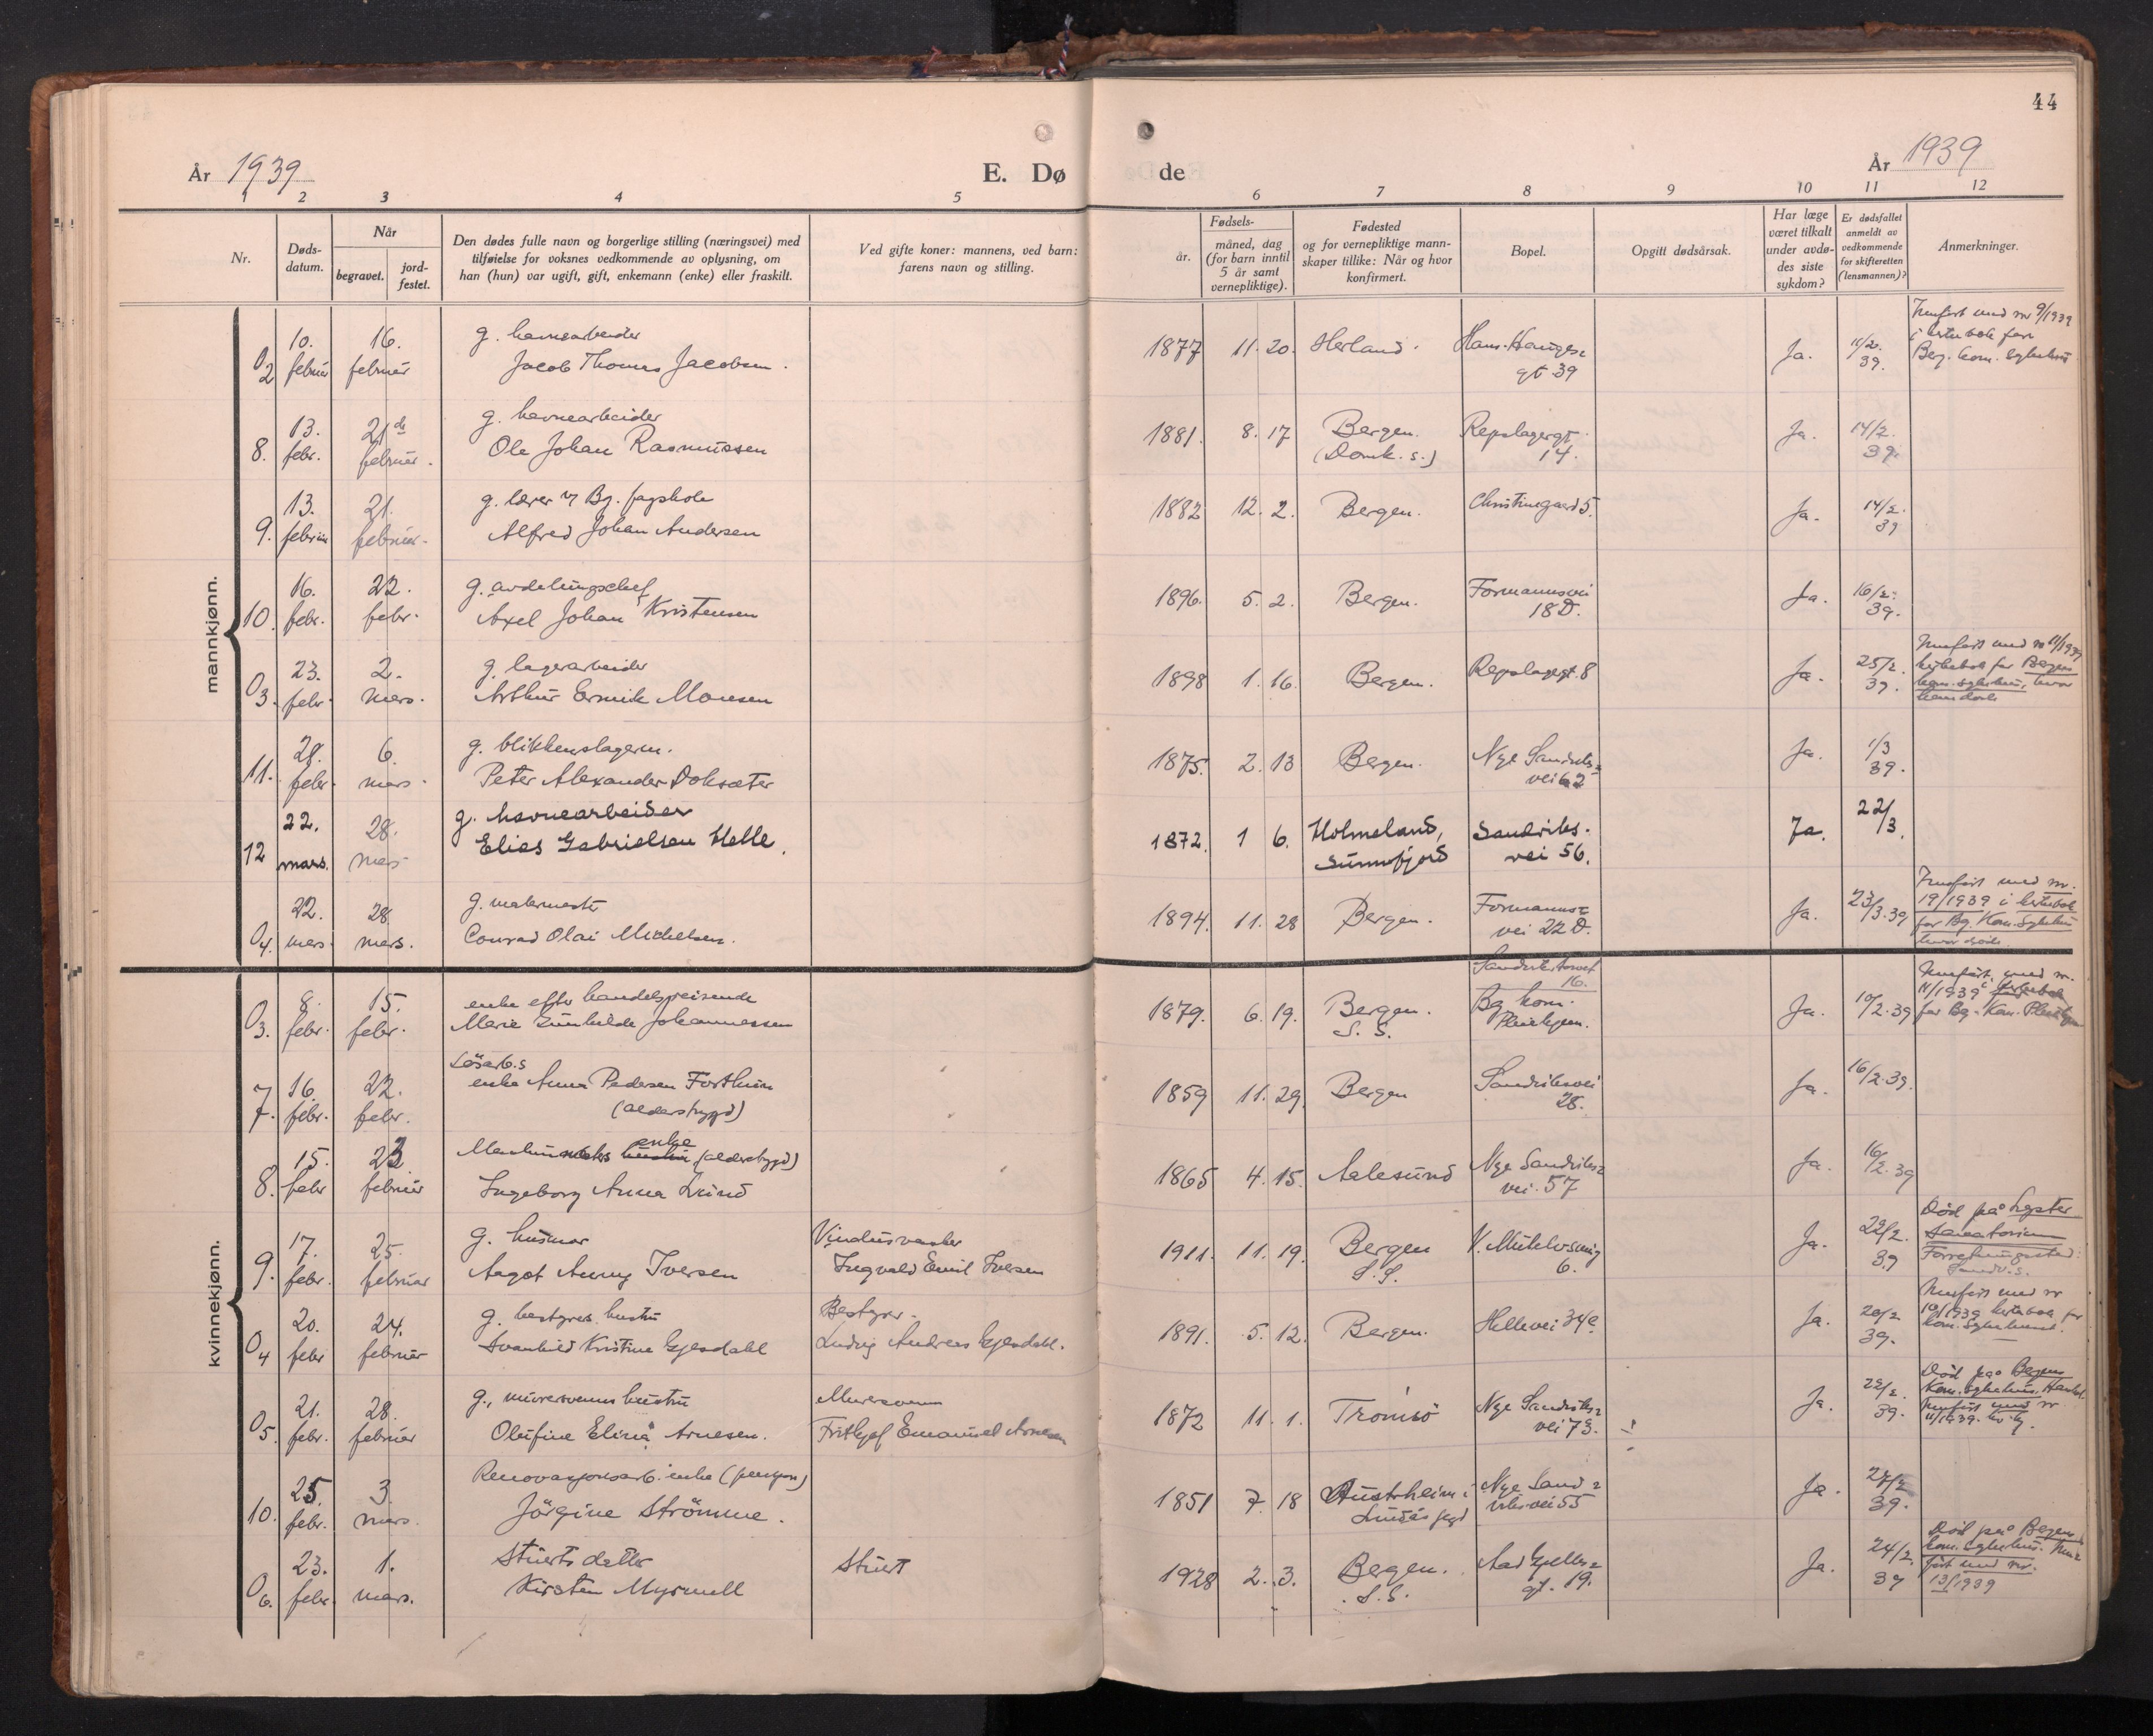 44
År 1939
E. Dø
de
År 1939
1 2 3 4 5 6 7 8 9 10 11 12
Nr.
Døds-
datum.
Når
begravet.
jord-
festet.
Den dødes fulle navn og borgerlige stilling (næringsvei) med
tilføielse for voksnes vedkommende av oplysning, om
han (hun) var ugift, gift, enkemann (enke) eller fraskilt.
Ved gifte koner: mannens, ved barn:
farens navn og stilling.
Fødsels-
år.
måned, dag
(for barn inntil
5 år samt
vernepliktige).
Fødested
og for vernepliktige mann-
skaper tillike: Når og hvor
konfirmert.
Bopel.
Opgitt dødsårsak.
Har læge
været tilkalt
under avdø-
des siste
sykdom?
Er dødsfallet
anmeldt av
vedkommende
for skifteretten
(lensmannen)?
Anmerkninger.
mannkjønn.
10. 16. g. havnearbeider
02 februar februar Jacob Thomas Jacobsen.
1877 11. 20. Herland. Hans Hauges
gt 39
Ja. 11/2. 39.
med nr 9/1939
Berg. kom. Sykehus
13. 21de g. havnearbeider
8. febr. februar. Ole Johan Rasmussen
1881. 8. 17 Bergen. Repslagergt.
(Domk. s.) 14.
Ja. 14/2. 39.
13. 21. g. lærer v Bg. fagskole
9. februar februar. Alfred Johan Andersen
1882 12. 2. Bergen. Christinegaard 5.
Ja. 14/2. 39
16. 22. g. avdelingschef
10. febr. febr. Axel Johan Kristensen
1896. 5. 2. Bergen. Formannsvei
18D.
Ja. 16/2. 39.
23. 2. g. lagerarbeider
03. febr. mars. Arthur Monsen
1898 1. 16. Bergen. Repslagergt. 8
Ja. 25/2. 39.
med nr 11/1939
for Bergens
kom. sykehus, hvor
28. 6. g. blikkenslagerm.
11. febr. mars. Peter Alexander Doksæter
1875. 2. 13 Bergen. Nye Sandviks-
vei 62
Ja. 1/3 39.
22. 28. g. havnearbeider
12 mars. mars Elias Gabrielsen Helle.
1872. 1 6. Holmeland, Sandviks-
Sunnfjord vei 56.
Ja. 22/3.
22. 28. g. malermester
04. mars. mars. Conrad Olai Michelsen.
1894. 11. 28 Bergen. Formanns-
vei 22 D.
Ja. 23/3. 39
med nr.
19/1939 i
for Bg. Kom. Sykehus
hvor døde.
kvinnekjønn.
8. 15. enke efter handelsreisende
03. febr. febr. Marie Gunhilde Johannessen
1879. 6. 19. Bergen. Sandvikstorvet
16.
S. S. Bg kom.
Pleiehjem.
Ja. 10/2. 39
med nr.
11/1939 i
for Bg. Kom. Pleiehjem
Løsarb.s
16. 22. enke Anna Pedersen Forthun
7. febr. febr. (alderstrygd)
1859 11. 29. Bergen Sandviksvei
28.
Ja. 16/2. 39.
15. 23 enke (alderstrygd)
8. febr februar Ingeborg Anna Lund
1865 4. 15. Aalesund Nye Sandviks-
vei. 57
Ja. 16/2. 39
17. 25. g. husmor Vindusvasker
9. febr. februar Aagot Iversen Ingvald Emil Iversen
1911. 11. 19. Bergen
S. S. 6.
Ja. 22/2. 39
Død på Lyster
Sanatorium
Forretningssted:
Sandv. s.
20. 24. g. bestyrers hustru Bestyrer.
04 febr februar Svanhild Kristine Gjesdahl Ludvig Andreas Gjesdahl.
1891. 5. 12. Bergen. Hellevei 34c.
Ja. 20/2 39.
med nr
10/1939 for
kom. Sykehuset.
21. 28. g., murersvenns hustru Murersvenn
05. febr. februar Olufine Elina Arnesen. Frithjof Emanuel Arnesen
1872 11. 1. Tromsö Nye Sandviks-
vei 73.
Ja. 22/2. 39.
Død på Bergens
Kom. Sykehus.
med nr
11/1939.
25. 3. Renovasjonsarb. enke (pensjon)
10. febr. mars. Jörgine Strömme.
1851 7. 18 Austrheim i Nye Sand-
Lindås pgd viksvei 55
Ja. 27/2 39.
23. 1. Stuerts datter Stuert
06. febr. mars. Kirsten Myrmell
1928 2. 3. Bergen. Aad Gjelles-
S. S. gt. 19.
Ja. 24/2. 39
Død på Bergens
kom. sykehus.
ført med nr.
13/1939